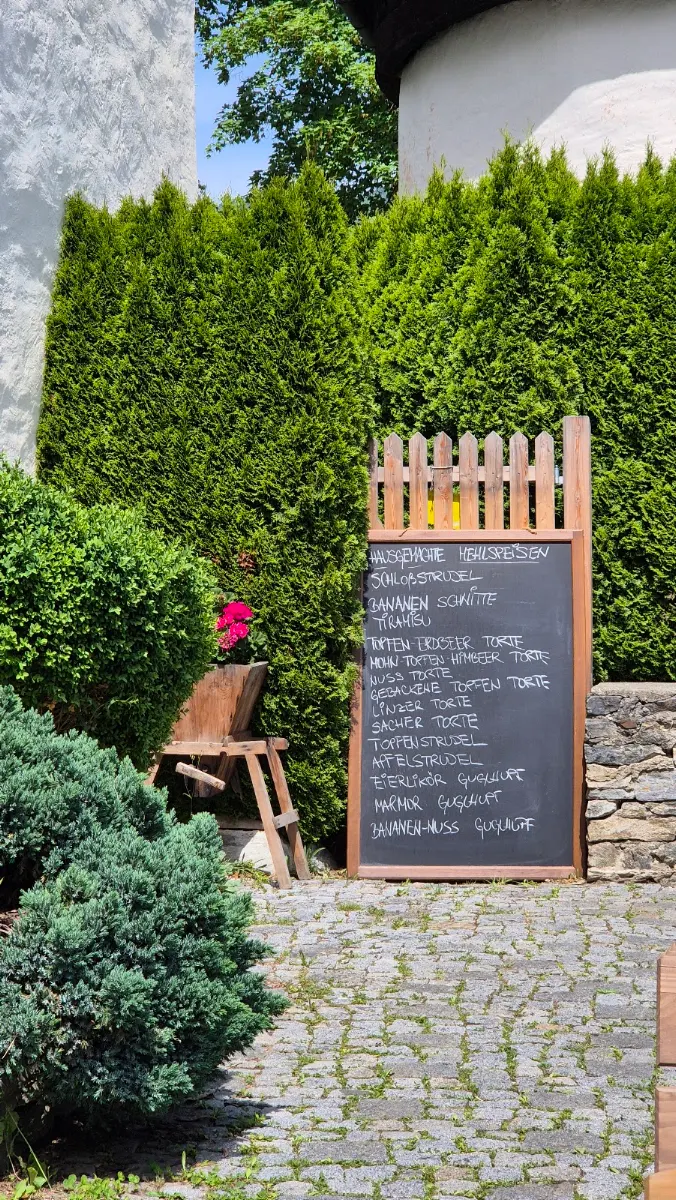 HAUSGEMACHTE MEHLSPEISEN
SCHLOßSTRUDEL
BANANEN SCHNITTE
TIRAMISU
TOPFEN-ERDBEER TORTE
MOHN-TOPFEN-HIMBEER TORTE
NUSS TORTE
GEBACKENE TOPFEN TORTE
LINZER TORTE
SACHER TORTE
TOPFENSTRUDEL
APFELSTRUDEL
EIERLIKÖR GUGLHUPF
MARMOR GUGLHUPF
BANANEN-NUSS GUGLHUPF